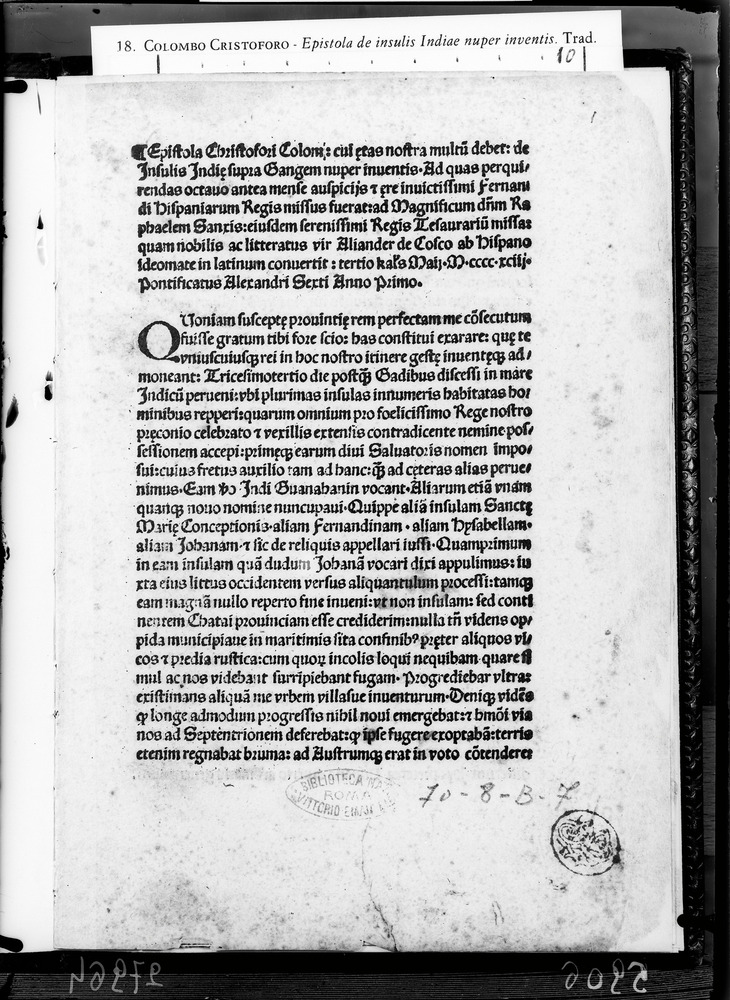 18. COLOMBO CRISTOFORO - Epistola de insulis Indiae nuper inventis. Trad.
10
1
¶Epistola Christofori Colom: cui ętas nostra multū debet: de
Insulis Indię supra Gangem nuper inuentis·Ad quas perqui/
rendas octauo antea mense auspicijs ⁊ ęre inuictissimi Fernan
di Hispaniarum Regis missus fuerat:ad Magnificum dn̄m Ra
phaelem Sanxis:eiusdem serenissimi Regis Tesaurariū missa:
quam nobilis ac litteratus vir Aliander de Cosco ab Hispano
ideomate in latinum conuertit : tertio kał's Maij·M·cccc·xciij·
Pontificatus Alexandri Sexti Anno Primo.
QUoniam susceptę prouintię rem perfectam me cōsecutum
fuisse gratum tibi fore scio: has constitui exarare: quę te
vniuscuiusqꝫ rei in hoc nostro itinere gestę inuentęqꝫ ad/
moneant: Tricesimotertio die postqꝫ̄ Gadibus discessi in mare
Indicū perueni:vbi plurimas insulas innumeris habitatas ho/
minibus repperi:quarum omnium pro foelicissimo Rege nostro
pręconio celebrato ⁊ vexillis extensis contradicente nemine pos/
sessionem accepi:primęqꝫ earum diui Saluatoris nomen impo/
sui:cuius fretus auxilio tam ad hanc:qꝫ̄ ad cęteras alias perue/
nimus·Eam ꝟo Indi Guanahanin vocant·Aliarum etiā vnam
quanqꝫ nouo nomine nuncupaui·Quippe aliā insulam Sanctę
Marię Conceptionis·aliam Fernandinam · aliam Hysabellam·
aliam Johanam·⁊ sic de reliquis appellari iussi·Quamprimum
in eam insulam quā dudum Johanā vocari dixi appulimus: iu
xta eius littus occidentem versus aliquantulum processi:tamqꝫ
eam magnā nullo reperto fine inueni:vt non insulam: sed conti
nentem Chatai prouinciam esse crediderim:nulla tn̄ videns op/
pida municipiaue in maritimis sita confinibꝰ pręter aliquos vi/
cos ⁊ predia rustica:cum quoꝝ incolis loqui nequibam·quare si
mul ac nos videbant surripiebant fugam· Progrediebar vltra:
existimans aliquā me vrbem villasue inuenturum·Deniqꝫ vidēs
ꝙ longe admodum progressis nihil noui emergebat:⁊ hmōi via
nos ad Septentrionem deferebat:ꝙ ipse fugere exoptabā:terris
etenim regnabat bruma: ad Austrumqꝫ erat in voto cōtendere:
BIBLIOTECA
ROMA
VITTORIO EMAN
70-8-B-7
27964
5906